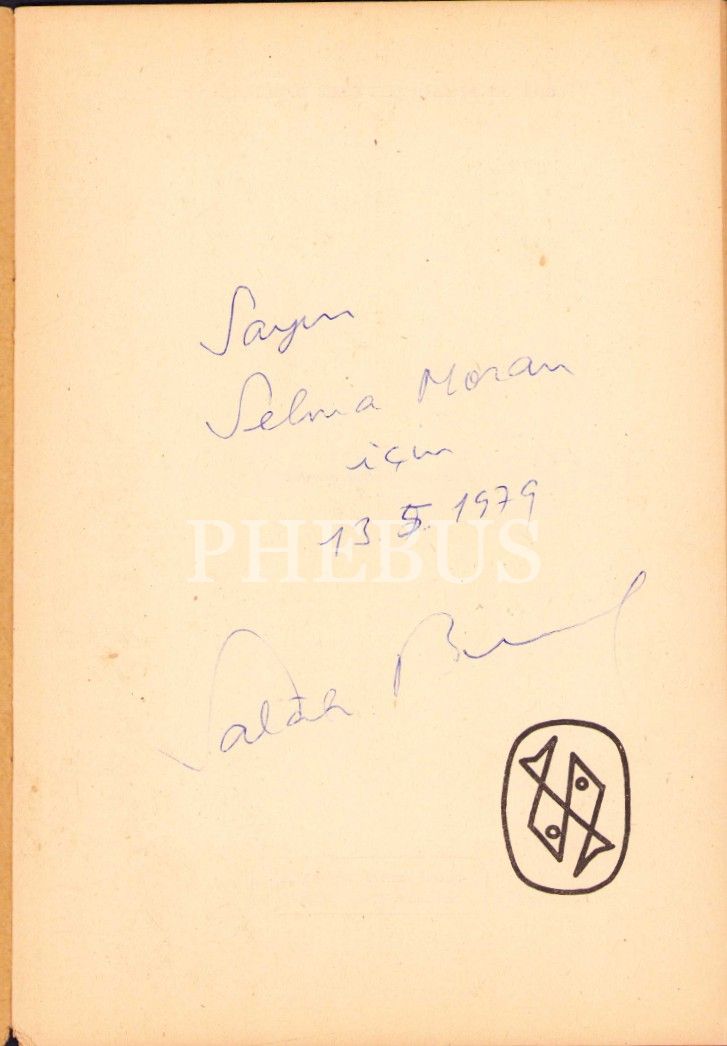 Sayın
Selma Moran
için
13.5.1979
PHEBUS
Salâh Birsel